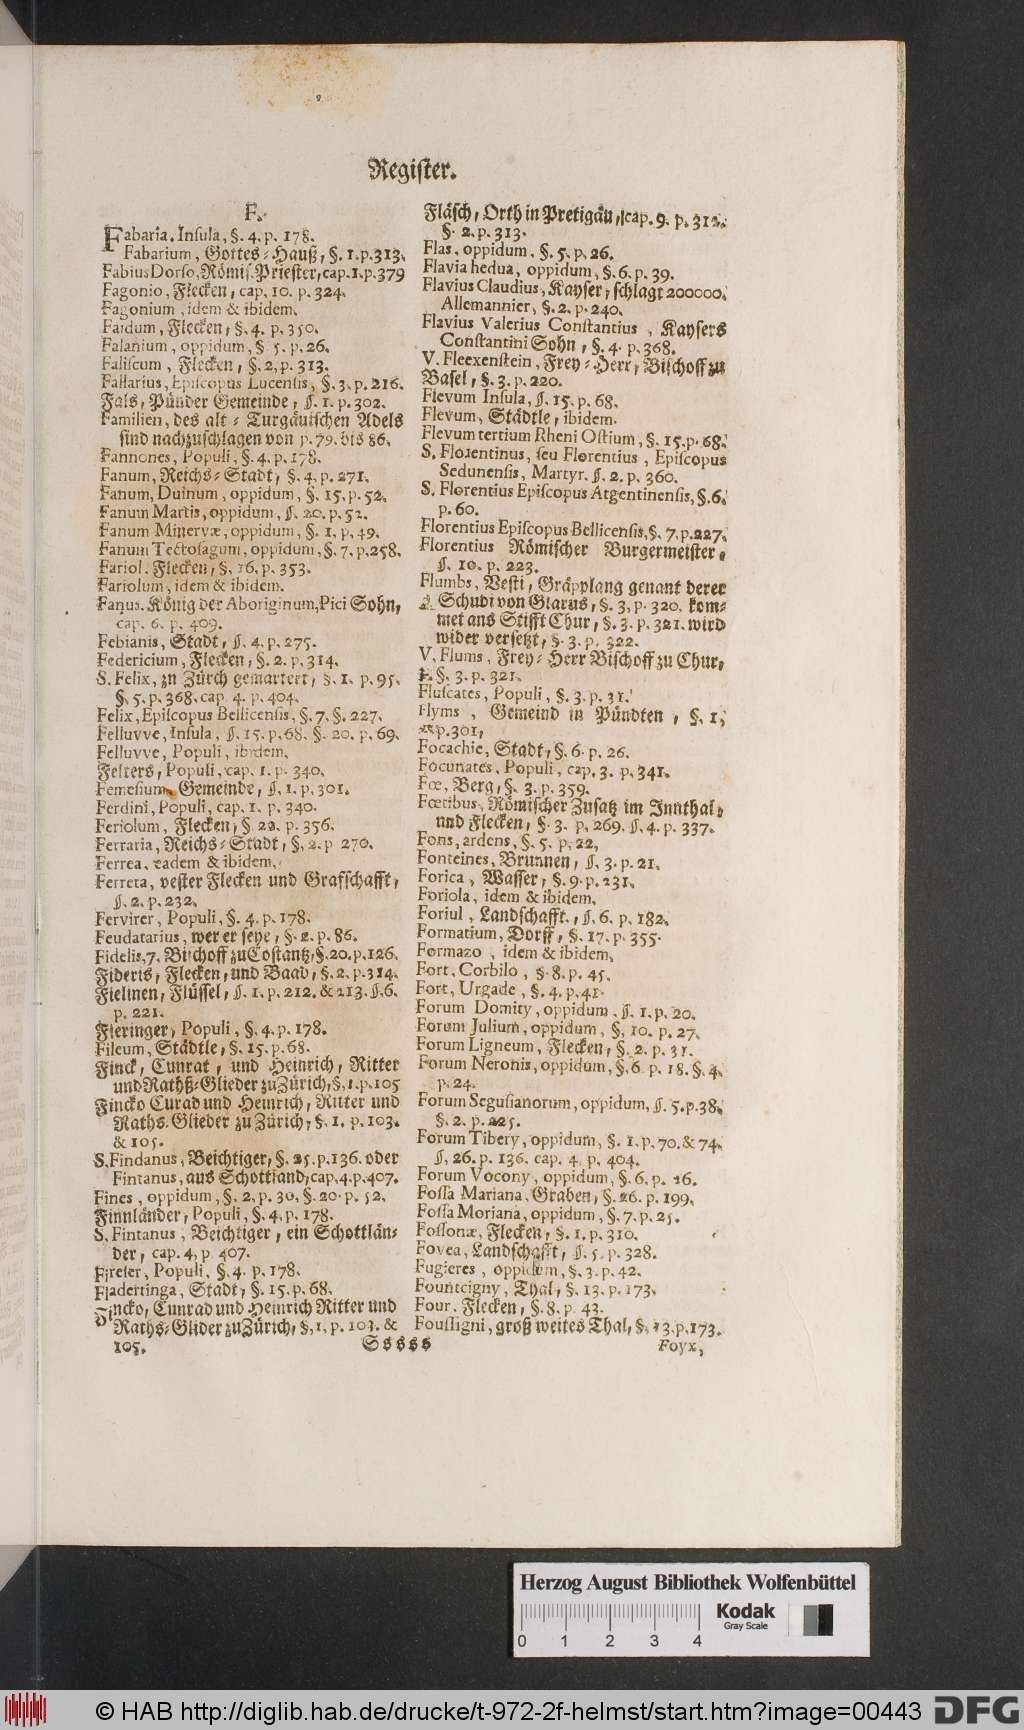 Register.
F.
Fabaria. Insula, §. 4. p. 178.
Fabarium, Gottes-Hauß, §. 1. p. 313.
Fabius Dorso, Römis. Priester, cap. 1. p. 379
Fagonio, Flecken, cap. 10. p. 324.
Fagonium, idem & ibidem.
Faidum, Flecken, §. 4. p. 350.
Falanium, oppidum, §. 5. p. 26.
Faliscum, Flecken, §. 2. p. 313.
Fallarius, Episcopus Lucensis, §. 3. p. 216.
Fals, Pünder Gemeinde, §. 1. p. 302.
Familien, des alt-Turgäuischen Adels
sind nachzuschlagen von p. 79. bis 86.
Fannones, Populi, §. 4. p. 178.
Fanum, Reichs-Stadt, §. 4. p. 271.
Fanum, Duinum, oppidum, §. 15. p. 52.
Fanum Martis, oppidum, §. 20. p. 52.
Fanum Minervæ, oppidum, §. 1. p. 49.
Fanum Tectosagum, oppidum, §. 7. p. 258.
Fariol. Flecken, §. 16. p. 353.
Fariolum, idem & ibidem.
Fanus. König der Aboriginum, Pici Sohn,
cap. 6. p. 409.
Febianis, Stadt, §. 4. p. 275.
Federicium, Flecken, §. 2. p. 314.
S. Felix, zu Zürch gemartert, §. 1. p. 95.
§. 5. p. 368. cap. 4. p. 404.
Felix, Episcopus Bellicensis, §. 7. §. 227.
Felluvve, Insula, §. 15. p. 68. §. 20. p. 69.
Felluvve, Populi, ibidem.
Felters, Populi, cap. 1. p. 340.
Femesium, Gemeinde, §. 1. p. 301.
Ferdini, Populi, cap. 1. p. 340.
Feriolum, Flecken, §. 22. p. 356.
Ferraria, Reichs-Stadt, §. 2. p 270.
Ferrea, eadem & ibidem.
Ferreta, vester Flecken und Grafschafft,
§. 2. p. 232.
Fervirer, Populi, §. 4. p. 178.
Feudatarius, wer er seye, §. 2. p. 86.
Fidelis, 7. Bischoff zu Costantz, §. 20. p. 126.
Fideris, Flecken, und Baad, §. 2. p. 314.
Fielinen, Flüssel, §. 1. p. 212. & 213. §. 6.
p. 221.
Fieringer, Populi, §. 4. p. 178.
Fileum, Städtle, §. 15. p. 68.
Finck, Cunrat, und Heinrich, Ritter
und Rathß-Glieder zu Zürich, §. 1. p. 105
Fincko Curad und Heinrich, Ritter und
Raths. Glieder zu Zürich, §. 1. p. 103.
& 105.
S. Findanus, Beichtiger, §. 25. p. 136. oder
Fintanus, aus Schottland, cap. 4. p. 407.
Fines, oppidum, §. 2. p. 30. §. 20. p. 52.
Finnländer, Populi, §. 4. p. 178.
S. Fintanus, Beichtiger, ein Schottlän-
der, cap. 4. p. 407.
Fireser, Populi, §. 4. p. 178.
Fladertinga, Stadt, §. 15. p. 68.
Fincko, Cunrad und Heinrich Ritter und
Raths-Glider zu Zürich, §. 1. p. 103. &
105.
Fläsch, Orth in Pretigäu, cap. 9. p. 312.
§. 2. p. 313.
Flas, oppidum, §. 5. p. 26.
Flavia hedua, oppidum, §. 6. p. 39.
Flavius Claudius, Kayser, schlagt 200000.
Allemannier, §. 2. p. 240.
Flavius Valerius Constantius, Kaysers
Constantini Sohn, §. 4. p. 368.
V. Fleexenstein, Frey-Herr, Bischoff zu
Basel, §. 3. p. 220.
Flevum Insula, §. 15. p. 68.
Flevum, Städtle, ibidem.
Flevum tertium Rheni Ostium, §. 15. p. 68.
S. Florentinus, seu Florentius, Episcopus
Sedunensis, Martyr. §. 2. p. 360.
S. Florentius Episcopus Argentinensis, §. 6.
p. 60.
Florentius Episcopus Bellicensis, §. 7. p. 227.
Florentius Römischer Burgermeister,
§. 10. p. 223.
Flumbs, Vesti, Gräpplang genant derer
Schudi von Glarus, §. 3. p. 320. kom-
met ans Stifft Chur, §. 3. p. 321. wird
wider versetzt, §. 3. p. 322.
V. Flums, Frey-Herr Bischoff zu Chur,
§. 3. p. 321.
Fluscates, Populi, §. 3. p. 31.
Flyms, Gemeind in Pündten, §. 1,
p. 301,
Focachie, Stadt, §. 6. p. 26.
Focunates, Populi, cap. 3. p. 341.
Fœ, Berg, §. 3. p. 359.
Fœtibus, Römischer Zusatz im Innthal,
und Flecken, §. 3. p. 269. §. 4. p. 337.
Fons, ardens, §. 5. p. 22,
Fonteines, Brunnen, §. 3. p. 21.
Forica, Wasser, §. 9. p. 231.
Foriola, idem & ibidem.
Foriul, Landschafft., §. 6. p. 182.
Formatium, Dorff, §. 17. p. 355.
Formazo, idem & ibidem,
Fort, Corbilo, §. 8. p. 45.
Fort, Urgade, §. 4. p. 41.
Forum Domity, oppidum, §. 1. p. 20.
Forum Julium, oppidum, §. 10. p. 27.
Forum Ligneum, Flecken, §. 2. p. 31.
Forum Neronis, oppidum, §. 6. p. 18. §. 4.
p. 24.
Forum Segusianorum, oppidum, §. 5. p. 38.
§. 2. p. 225.
Forum Tibery, oppidum, §. 1. p. 70. & 74.
§. 26. p. 136. cap. 4. p. 404.
Forum Vocony, oppidum, §. 6. p. 26.
Fossa Mariana, Graben, §. 26. p. 199.
Fossa Moriana, oppidum, §. 7. p. 25.
Fossonæ, Flecken, §. 1. p. 310.
Fovea, Landschafft, §. 5. p. 328.
Fugieres, oppidum, §. 3. p. 42.
Fountcigny, Thal, §. 13. p. 173.
Four. Flecken, §. 8. p. 43.
Foussigni, groß weites Thal, §. 13. p. 173.
Sssss
Foyx,
Herzog August Bibliothek Wolfenbüttel
0 1 2 3 4
Kodak
Gray Scale
© HAB http://diglib.hab.de/drucke/t-972-2f-helmst/start.htm?image=00443
DFG